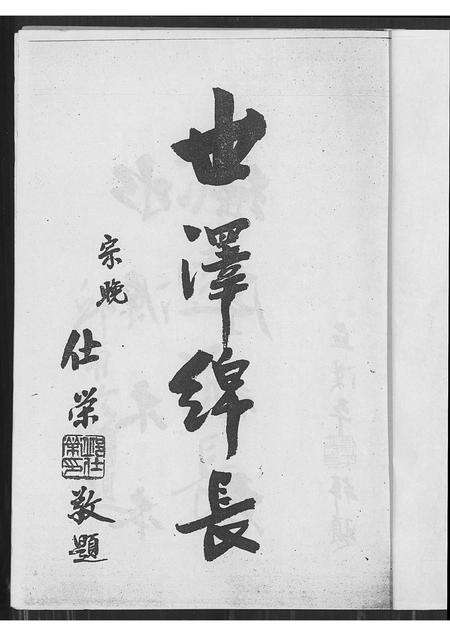 世澤綿長
宗晚
仕榮
敬題